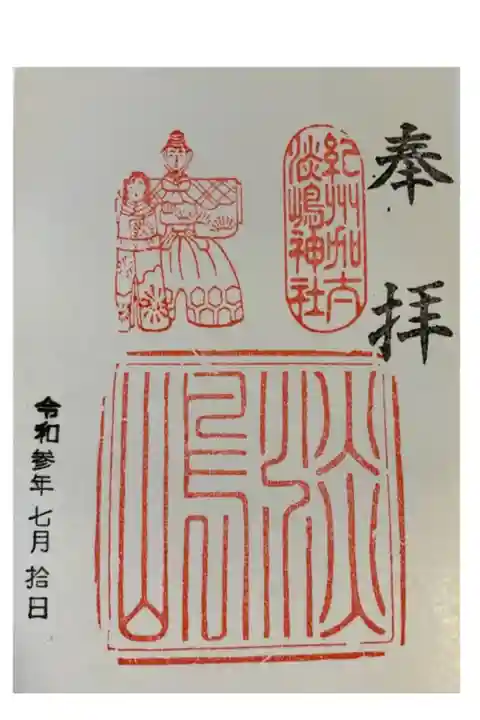 奉拝
紀州加太
淡嶋神社
淡嶋
令和参年七月拾日